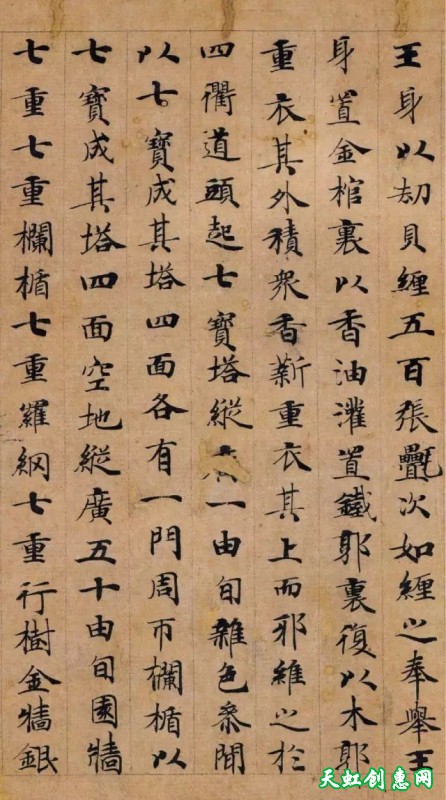 王身以劫貝纏五百張氎次如纏之奉舉王
身置金棺裏以香油灌置鐵郭裏復以木郭
重衣其外積衆香薪重衣其上而邪維之於
四衢道頭起七寶塔縱一由旬雜色叅間
以七寶成其塔四面各有一門周帀欄楯以
七寶成其塔四面空地縱廣五十由旬園牆
七重七重欄楯七重羅網七重行樹金牆銀
天虹创惠网